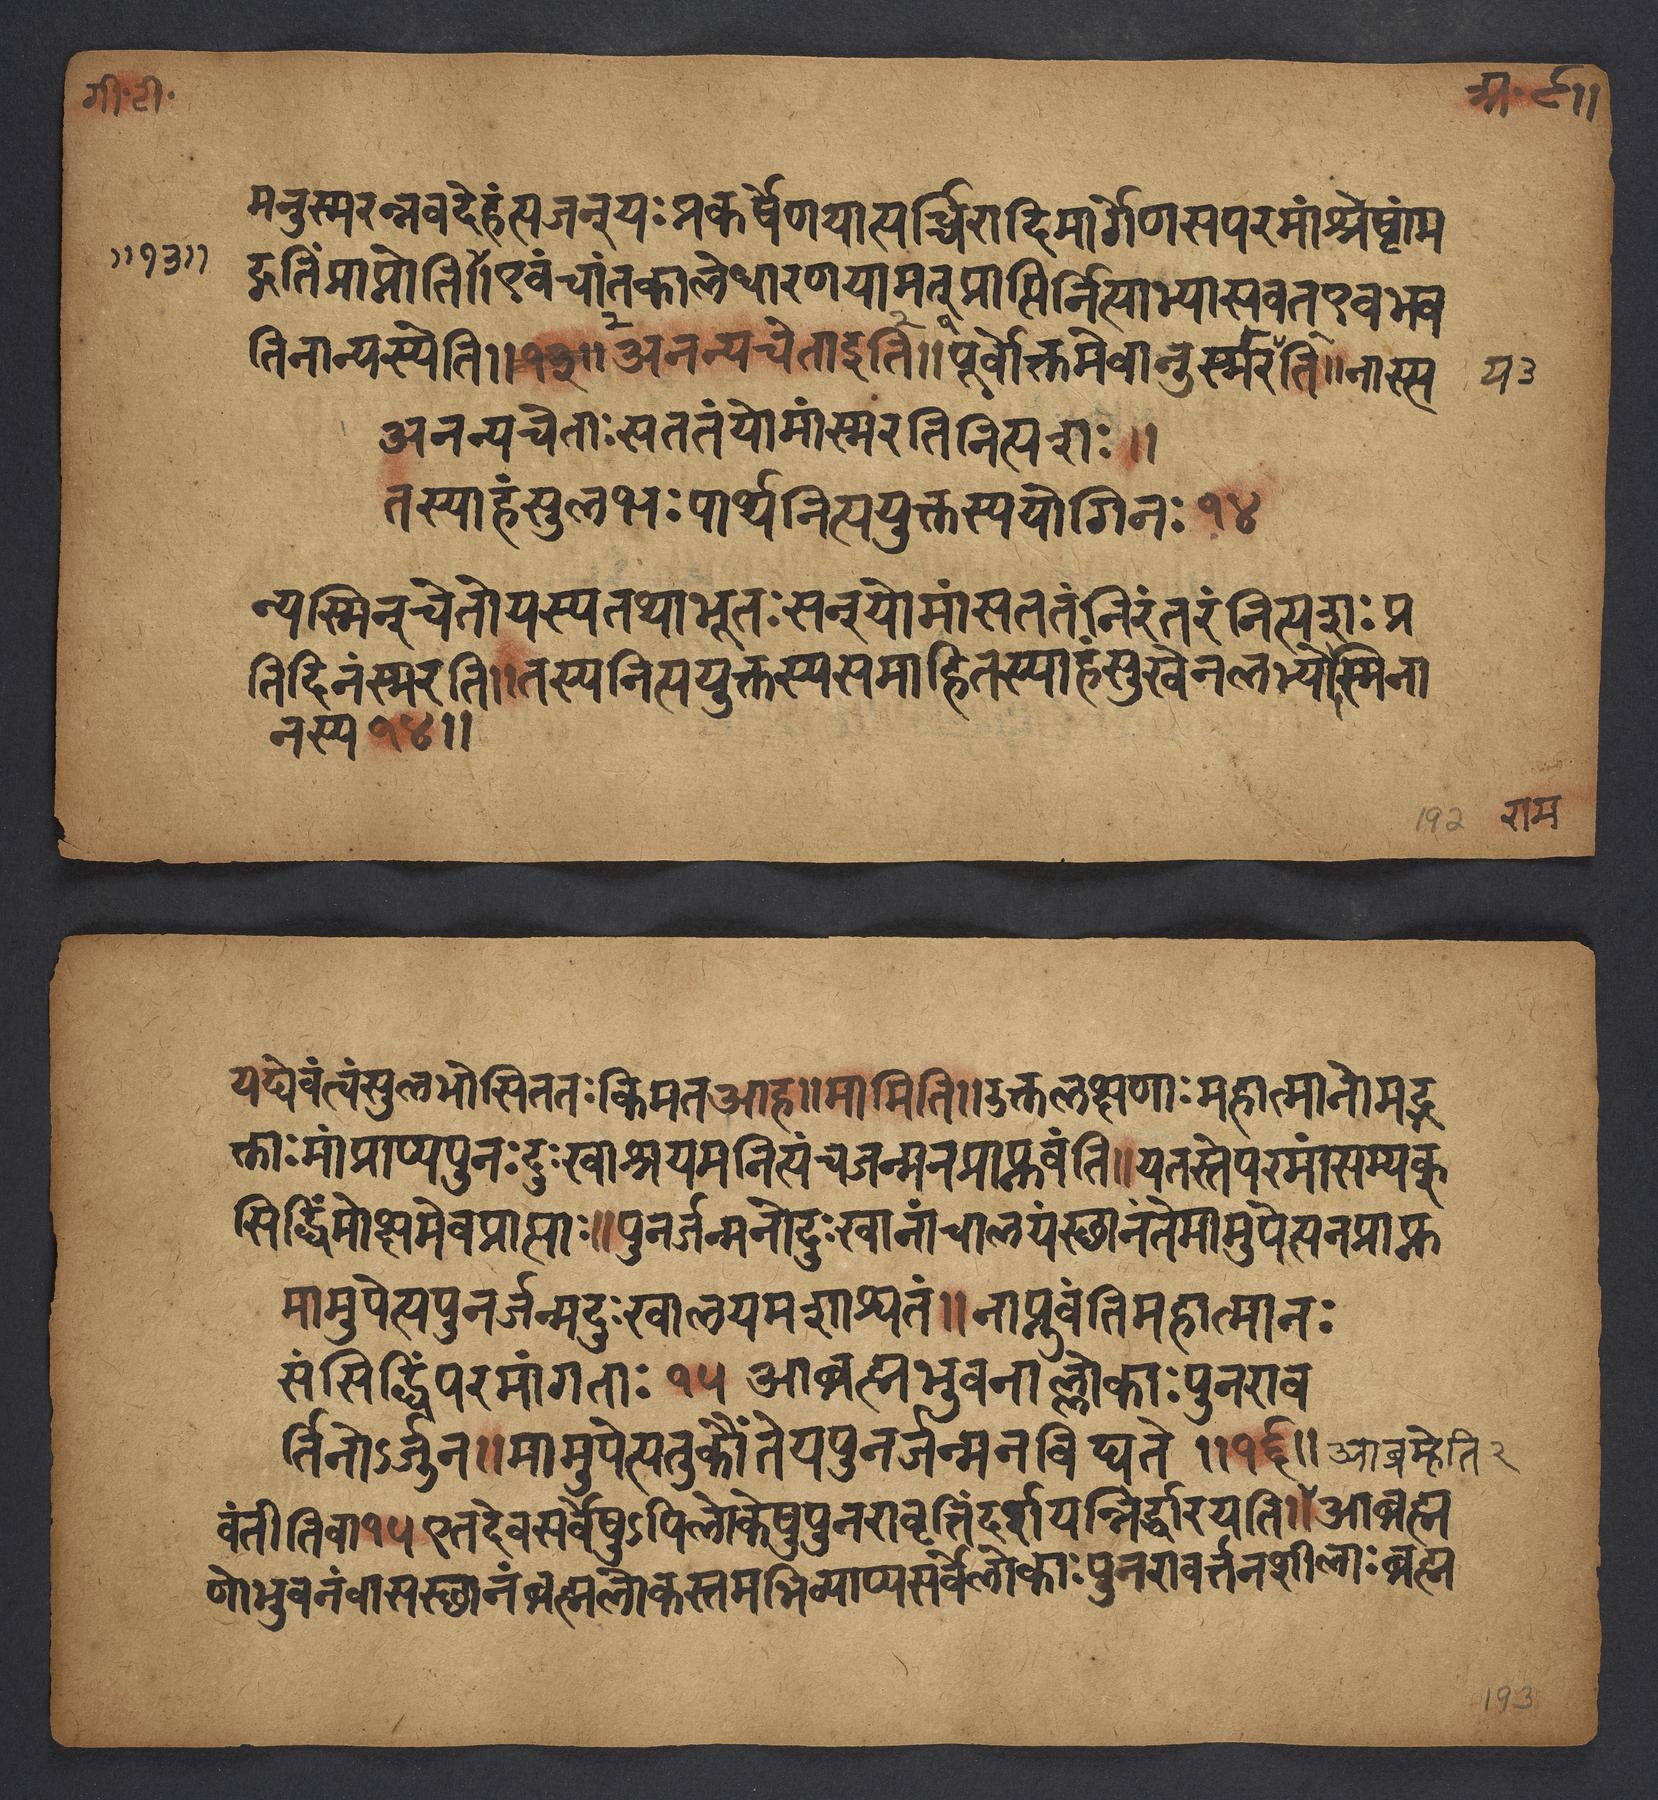 गी॰टी॰
अ॰ ८॥
मनुस्मरन्नवदेहंत्यजन्यः प्रकर्षेणयात्यर्च्चिरादिमार्गेणसपरमांश्रेष्ठांम
॥१३॥
द्गतिंप्राप्नोति॥एवंचांतकालेधारणयामत्प्राप्तिर्नित्याभ्यासवतएवभव
तिनान्यस्येति॥१३॥अनन्यचेताइति॥पूर्वोक्तमेवानुस्मरति॥नास्त्य
य३
अनन्यचेताःसततंयोमांस्मरतिनित्यशः॥
तस्याहंसुलभःपार्थनित्ययुक्तस्ययोगिनः१४
न्यस्मिन्चेतोयस्यतथाभूतःसन्योमांसततंनिरंतरंनित्यशःप्र
तिदिनंस्मरति॥तस्यनित्ययुक्तस्यसमाहितस्याहंसुखेनलभ्योस्मिना
नस्य१४॥
192
राम
यद्येवंत्वंसुलभोसिततःकिमतआह॥मामिति॥उक्तलक्षणाःमहात्मानोमद्भ
क्ताःमांप्राप्यपुनःदुःखाश्रयमनित्यंचजन्मनप्राप्नुवंति॥यतस्तेपरमांसम्यक्
सिद्धिंमोक्षमेवप्राप्ताः॥पुनर्जन्मनोदुःखानांचालयंस्थानंतेमामुपेत्यनप्राप्नु
मामुपेत्यपुनर्जन्मदुःखालयमशाश्वतं॥नाप्नुवंतिमहात्मानः
संसिद्धिंपरमांगताः१५आब्रह्मभुवनाल्लोकाःपुनराव
र्तिनोऽर्जुन॥मामुपेत्यतुकौंतेयपुनर्जन्मनविद्यते॥१६॥
आब्रम्हेति २
वंतीतिवा१५एतदेवसर्वेषुऽपिलोकेषुपुनरावृत्तिंदर्शयन्निर्द्धारयति॥आब्रह्म
णोभुवनंवासस्थानंब्रह्मलोकस्तमभिव्याप्यसर्वेलोकाःपुनरावर्त्तनशीलाःब्रह्म
193